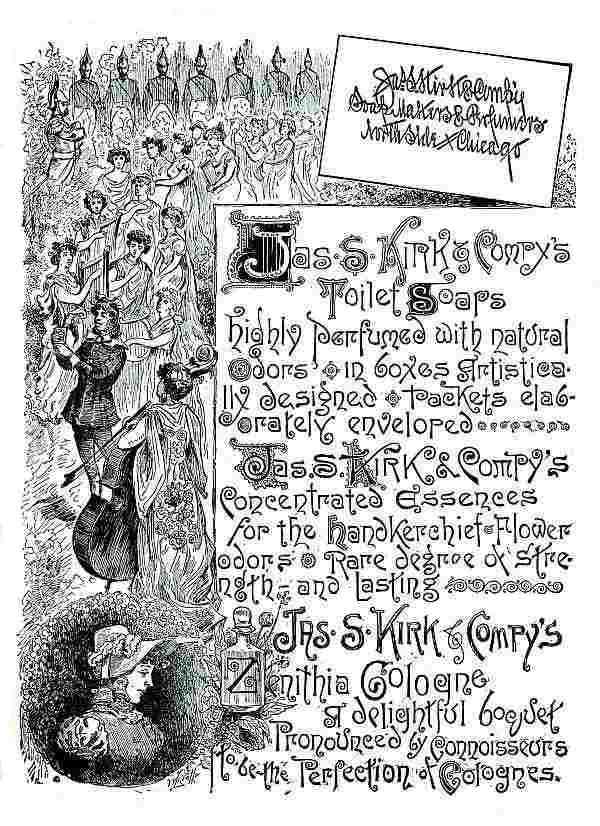 Jas. S. Kirk & Compy
Soap Makers & Perfumers
North Side X Chicago
Jas. S. Kirk & Compy's
Toilet Soaps
highly perfumed with natural
Odors in boxes Artistica-
lly designed Packets elab-
orately enveloped
Jas. S. Kirk & Compy's
Concentrated Essences
for the Handkerchief Flower
odors Rare degree of Stre-
ngth - and Lasting
Jas. S. Kirk & Compy's
Zenithia Cologne
a delightful boquet
Pronounced by Connoisseurs
to be the Perfection of Colognes.